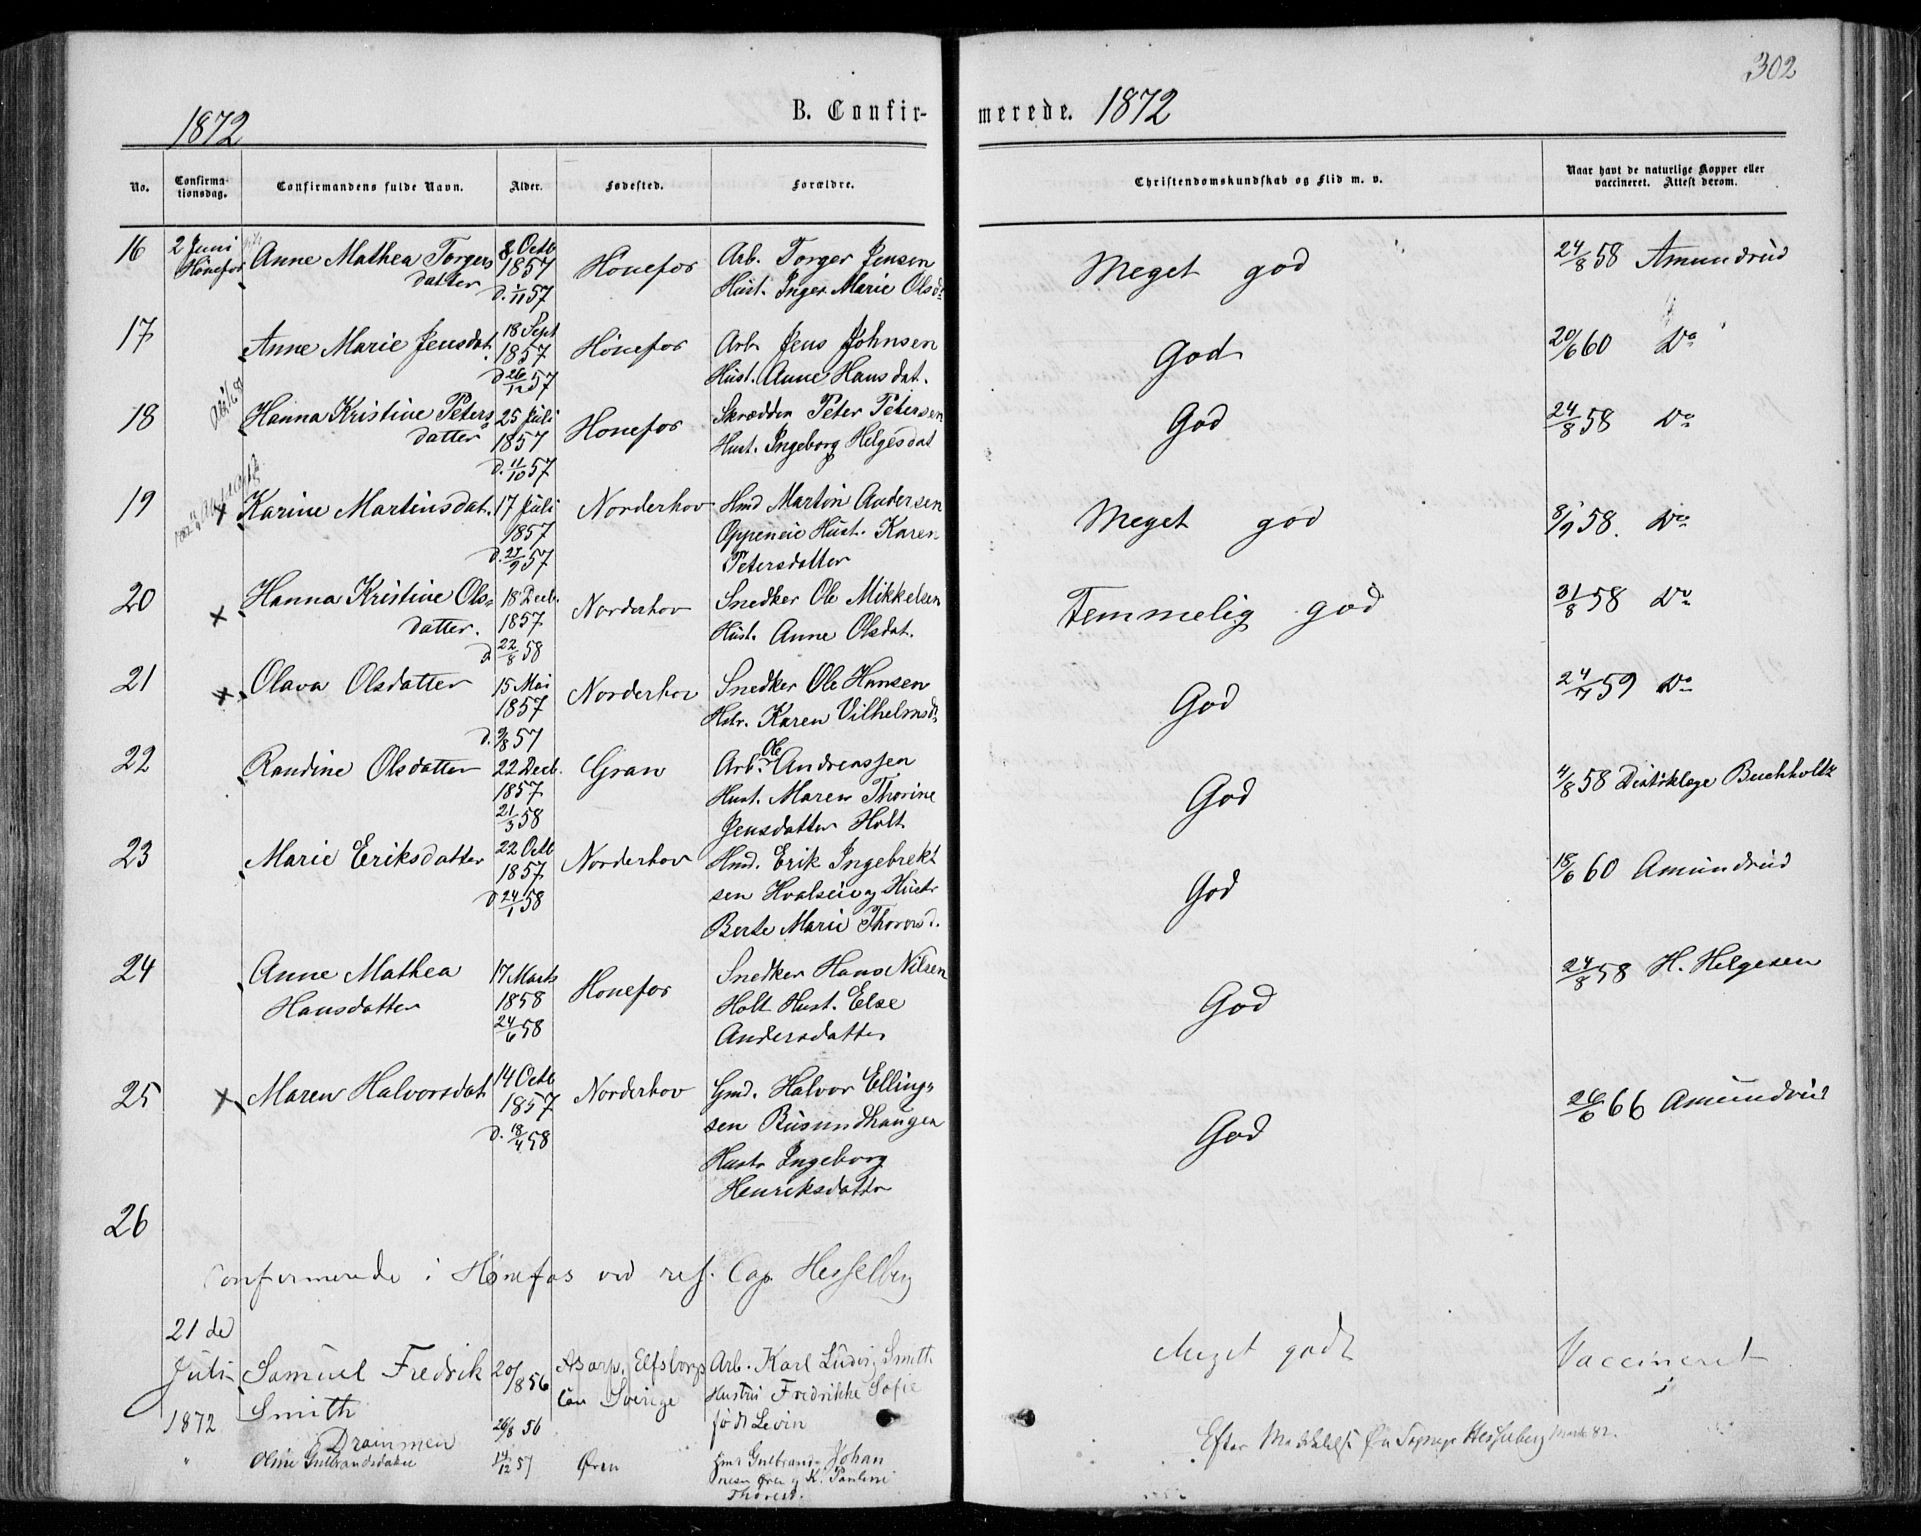 302
1872 B. Confirmerede. 1872
No. Confirmationsdag. Confirmandens fulde Navn. Alder. Fødested. Forældre. Christendomskundskab og Flid m. v. Naar havt de naturlige Kopper eller vaccineret. Attest derom.
16 2 Juni Anne Mathea Torgers 8 Octb Hönefos Arb. Torger Jensen Meget god 24/8 58 Amundrud
Hönefos datter 1857 Hust. Inger Marie Olsd.
D. 1/11 57
17 Anne Marie Jensdat. 18 Sept Hönefos Arb. Jens Johnsen God 20/6 60 Do
1857 Hust. Anne Hansdat.
D 26/12 57
18 Hanna Kristine Peters 25 Juli Honefos Skrædder Peter Petersen God 24/8 58 Do
datter 1857 Hust. Ingeborg Helgesdat
D. 11/10 57
19 x Karine Martinsdat. 17 Juli Norderhov Hmd Martin Andersen Meget god 8/9 58. Do
1857 Oppeneie Hust. Karen
D. 27/9 57 Petersdatter
20 x Hanna Kristine Ols- 18 Decb. Norderhov Snedker Ole Mikkelsen Temmelig god 31/8 58 Do
datter. 1857 Hust. Anne Olsdat.
D 22/8 58
21 x Olava Olsdatter 15 Mai Norderhov Snedker Ole Hansen God 24/11 59 Do
1857 Hstr. Karen Vilhelmsd.
D. 9/8 57
22 Randine Olsdatter 22 Decb. Gran Arb. Ole Andreassen God 4/8 58 Distriklæge Buchholtz
1857 Hust. Maren Thorine
21/3 58 Jensdatter Holt
23 Marie Eriksdatter 22 Octb Norderhov Hmd. Erik Ingebrekt God 18/6 60 Amundrud
1857 sen Hvalseie og Hustr
D 24/1 58 Berte Marie Thorersd.
24 Anne Mathea 17 Marts Honefos Snedker Hans Nilsen God 24/8 58 H. Helgesen
Hansdatter 1858 Holt Hust. Else
24/6 58 Andersdatter
25 x Maren Halvorsdat 14 Octb Norderhov Gmd. Halvor Elling- God 26/6 66 Amundrud
1857 sen Busundhaugen
D. 18/4 58 Hustr Ingeborg
Henriksdatter
26
Confirmerede i Hönefos ved res. Cap. Hesselberg
21 de
Juli Samuel Fredrik 20/1856 Asarp, Elfsborgs Arb. Karl Ludvig Smith Meget godt Vaccineret
Smith Län Sverige Hustru Fredrikke Sofie
1872 26/8 56 født Levin
Drammen Efter Meddelelse Sognepr Hesselberg Marts 82.
" Oline Gulbrandsdatter 14/12 57 Øren Gulbrand Johan
nesen Øren og K. Pauline
Thoresd.